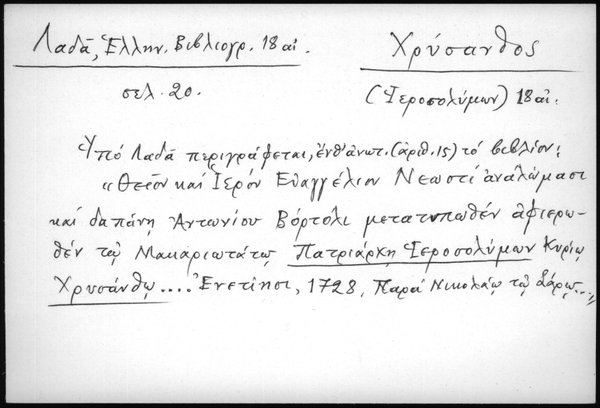 Λαδᾶ, Ἑλλην. Βιβλιογρ. 18 αἰ.
σελ. 20.
Χρύσανθος
(Ἱεροσολύμων) 18 αἰ.
Ὑπό Λαδᾶ περιγράφεται, ἔνθ' ἀνωτ. (ἀριθ. 15) τό βιβλίον:
«Θεῖον καί Ἱερόν Εὐαγγέλιον Νεωστί ἀναλώμασι
καί δαπάνῃ Ἀντωνίου Βόρτολι μετατυπωθέν ἀφιερω-
θέν τῷ Μακαριωτάτῳ Πατριάρχῃ Ἱεροσολύμων Κυρίῳ
Χρυσάνθῳ .... Ἐνετίησι, 1728, Παρά Νικολάῳ τῷ Σάρῳ...»